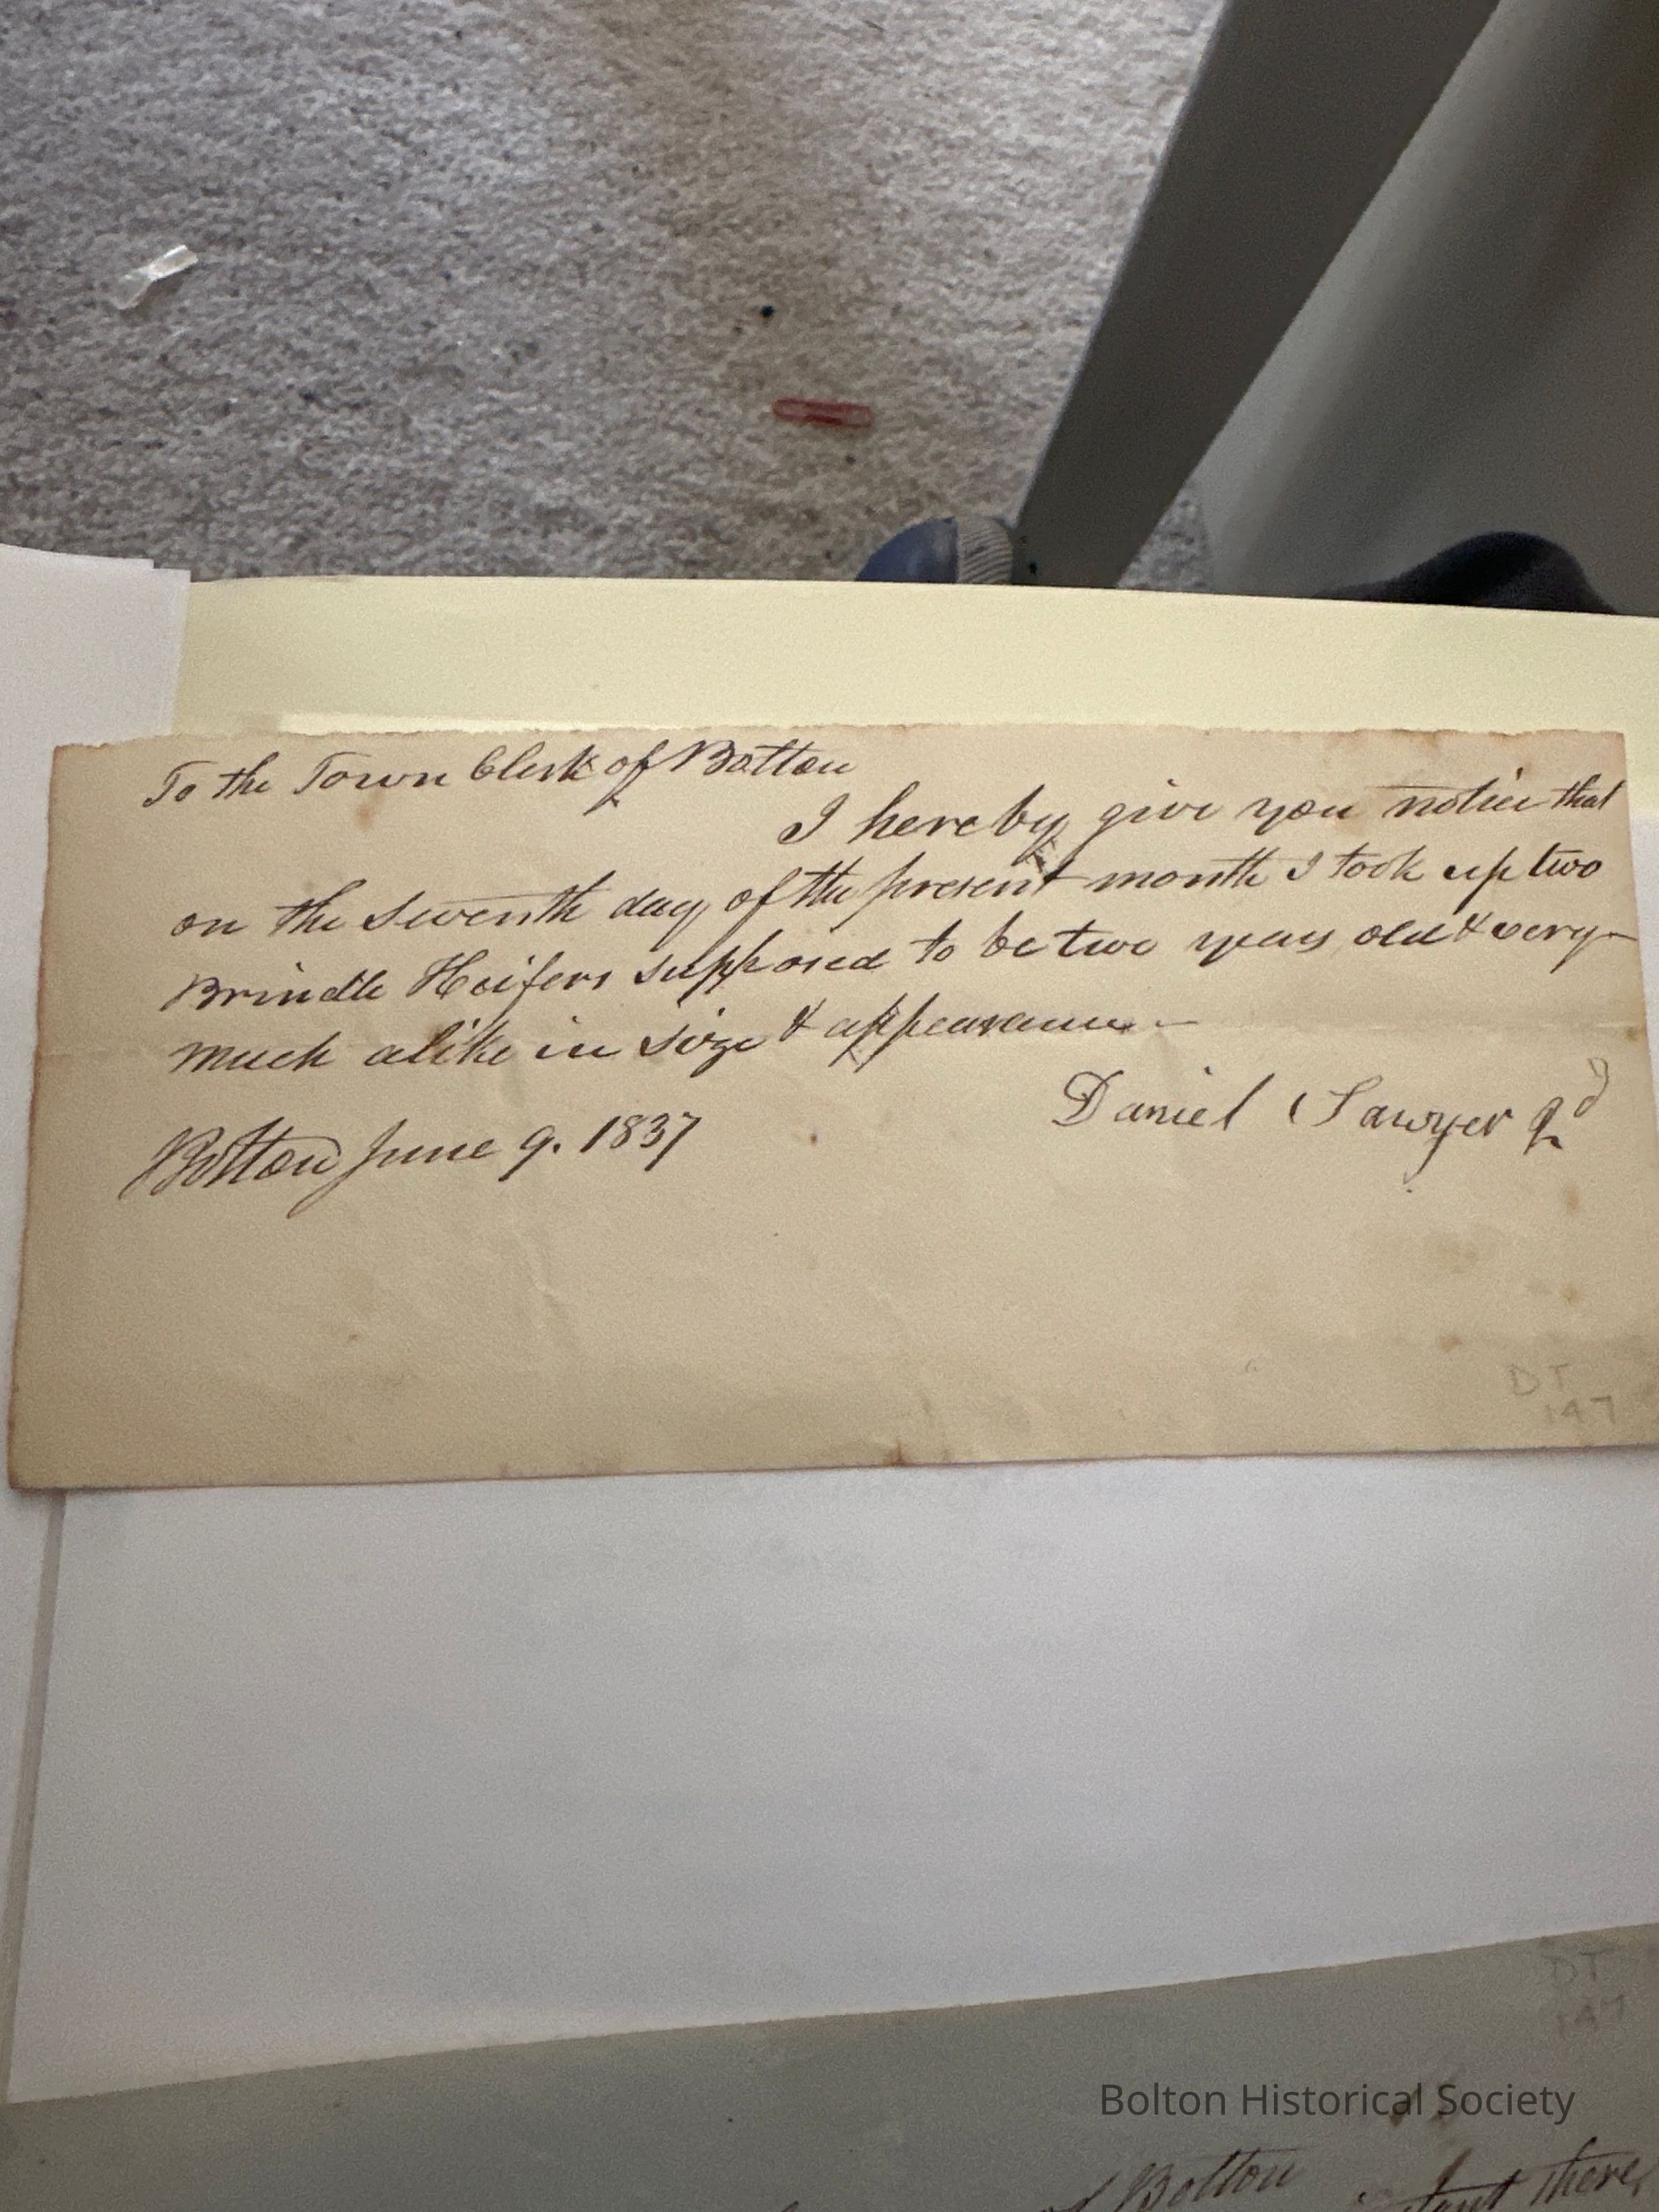 To the Town Clerk of Bolton
I hereby give you notice that
on the seventh day of the present month I took up two
Brindle Heifers supposed to be two years old & very
much alike in size & appearance. –
Daniel Sawyer 2d
Bolton June 9. 1837
DT
147
DT
147
Bolton Historical Society
of Bolton
there